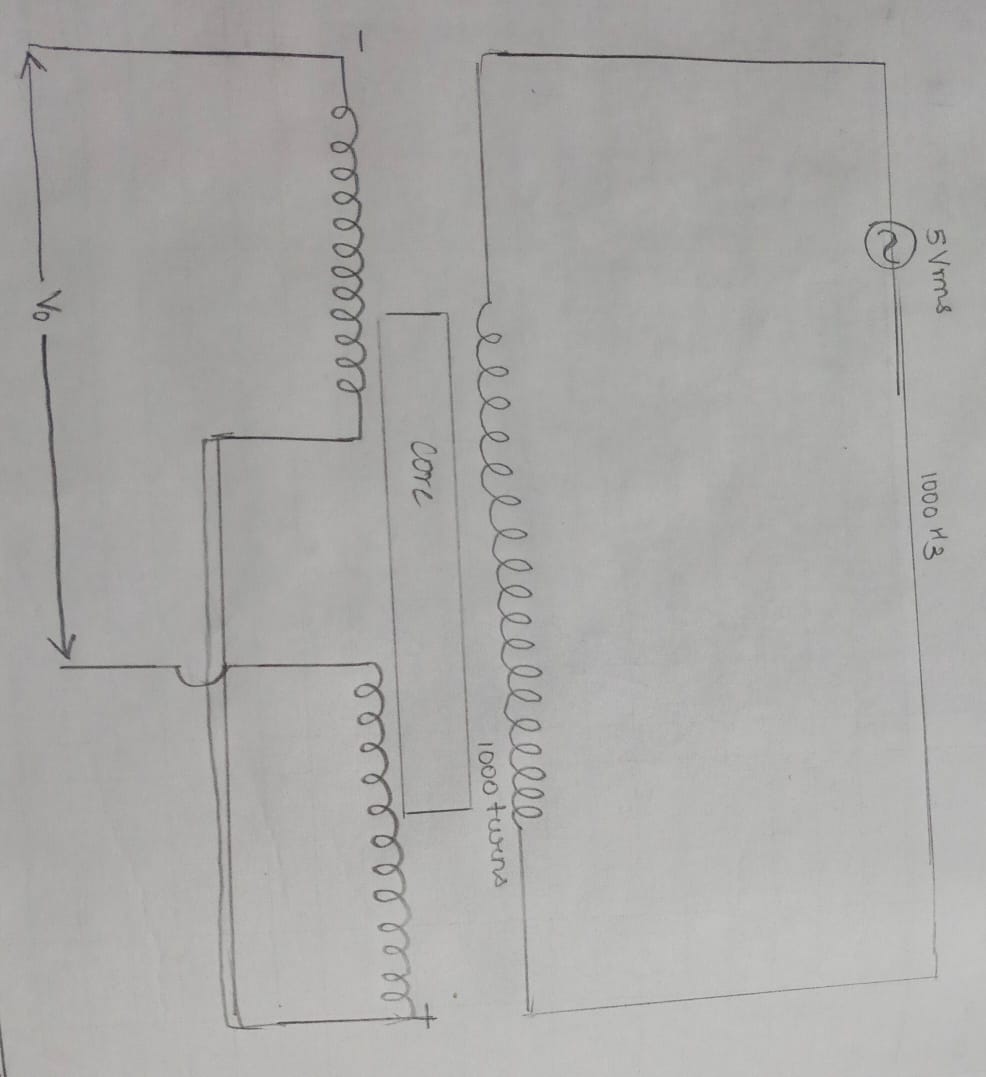 5Vrms
1000 Hz
1000 turns
core
-
+
V₀